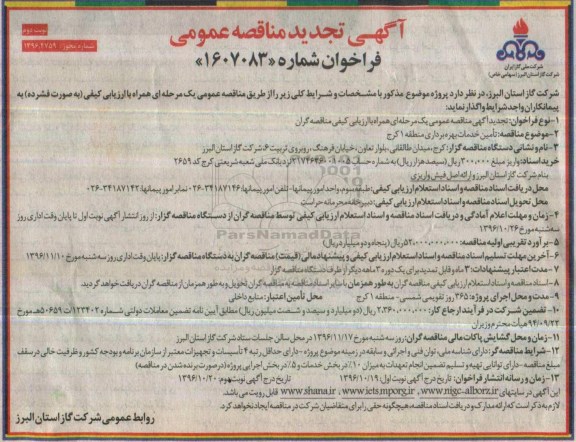 نوبت دوم
شماره مجوز: ۱۳۹۶.۲۷۵۹
آگهی تجدید مناقصه عمومی
فراخوان شماره «۱۶۰۷۰۸۳»
شرکت ملی گاز ایران
شرکت گاز استان البرز (سهامی خاص)
شرکت گاز استان البرز، در نظر دارد پروژه موضوع مذکور با مشخصات و شرایط کلی زیر را از طریق مناقصه عمومی یک مرحله ای همراه با ارزیابی کیفی (به صورت فشرده) به
پیمانکاران واجد شرایط واگذار نماید:
۱- نوع فراخوان: تجدید آگهی مناقصه عمومی یک مرحله ای همراه با ارزیابی کیفی مناقصه گران
۲- موضوع مناقصه: تأمین خدمات بهره برداری منطقه ۱ کرج
۳- نام و نشانی دستگاه مناقصه گزار: کرج، میدان طالقانی، بلوار تعاون، خیابان فرهنگ، روبروی تربیت ۶، شرکت گاز استان البرز
خرید اسناد: واریز مبلغ ۳۰۰,۰۰۰ ریال (سیصد هزار ریال) به شماره حساب نزد بانک ملی شعبه شریعتی کرج کد ۲۶۵۹
بنام شرکت گاز استان البرز و ارائه اصل فیش واریزی
محل دریافت اسناد مناقصه و اسناد استعلام ارزیابی کیفی: طبقه سوم، واحد امور پیمانها- تلفن امور پیمانها: ۳۴۱۸۷۱۴۶-۰۲۶ نمابر امور پیمانها: ۳۴۱۸۷۱۴۲-۰۲۶
محل تحویل اسناد مناقصه و اسناد استعلام ارزیابی کیفی: دبیرخانه محرمانه حراست
۴- زمان و مهلت اعلام آمادگی و دریافت اسناد مناقصه و اسناد استعلام ارزیابی کیفی توسط مناقصه گران از دستگاه مناقصه گزار: از روز انتشار آگهی نوبت اول تا پایان وقت اداری روز
سه شنبه مورخ ۱۳۹۶/۱۰/۲۶
۵- برآورد تقریبی اولیه مناقصه: ۵۲,۰۰۰,۰۰۰,۰۰۰ ریال (پنجاه و دو میلیارد ریال)
۶- آخرین مهلت تسلیم اسناد مناقصه و اسناد استعلام ارزیابی کیفی و پیشنهاد مالی (قیمت) مناقصه گران به دستگاه مناقصه گزار: پایان وقت اداری روز سه شنبه مورخ ۱۳۹۶/۱۱/۱۰
۷- مدت اعتبار پیشنهادات: ۳ ماه و قابل تمدید برای یک دوره ۳ ماهه دیگر از طرف دستگاه مناقصه گزار
۸- اسناد مناقصه و اسناد ارزیابی کیفی مناقصه گران به طور همزمان با سایر اسناد مناقصه به مناقصه گران تحویل و به طور همزمان از مناقصه گران دریافت خواهد گردید.
۹- مدت و محل اجرای پروژه: ۳۶۵ روز تقویمی شمسی- منطقه ۱ کرج محل تأمین اعتبار: منابع داخلی
۱۰- تضمین شرکت در فرآیند ارجاع کار: ۲,۳۶۰,۰۰۰,۰۰۰ ریال (دو میلیارد و سیصد و شصت میلیون ریال) مطابق آیین نامه تضمین معاملات دولتی شماره ۱۲۳۴۰۲/ت۵۰۶۵۹هـ مورخ
۹۴/۰۹/۲۲ هیأت محترم وزیران
۱۱- زمان و محل گشایش پاکات مالی مناقصه گران: روز سه شنبه مورخ ۱۳۹۶/۱۱/۱۷ در محل سالن جلسات ستاد شرکت گاز استان البرز
۱۲- شرایط مناقصه گر: دارای شناسه ملی، توان فنی و اجرایی و سابقه در زمینه موضوع پروژه- دارای حداقل رتبه ۴ تأسیسات و تجهیزات معتبر از سازمان برنامه و بودجه کشور و ظرفیت خالی در سقف
مبلغ مناقصه- دارای توانایی تهیه و تسلیم تضمین انجام تعهدات به میزان ۱۰٪ در بخش خدمات و ۵٪ در بخش اجرایی پروژه (در صورت برنده شدن در مناقصه)
۱۳- زمان و رسانه انتشار فراخوان: تاریخ درج آگهی نوبت اول ۱۳۹۶/۱۰/۱۹ تاریخ درج آگهی نوبت دوم: ۱۳۹۶/۱۰/۲۰
این آگهی در سایتهای www.shana.ir , www.ietsmporg.ir , www.nigc-alborz.ir قابل رویت می باشد.
لازم به ذکر است که ارائه مدارک و دریافت اسناد مناقصه، هیچگونه حقی را برای متقاضیان شرکت در مناقصه ایجاد نخواهد کرد.
روابط عمومی شرکت گاز استان البرز
ParsNamadData